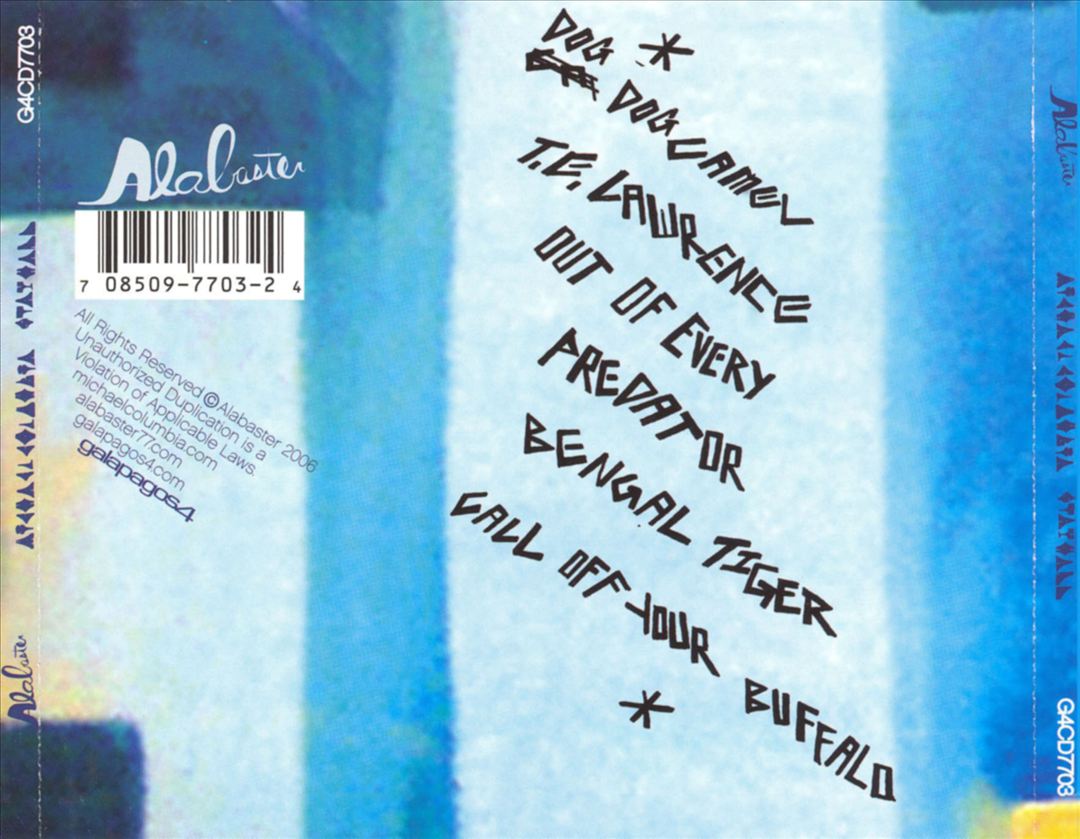 G4CD7703
Alabaster
7 08509-7703-2 4
All Rights Reserved ©Alabaster 2006
Unauthorized Duplication is a
Violation of Applicable Laws.
michaelcolumbia.com
alabaster77.com
galapagos4.com
galapagos4
Alabaster
DOG *
DOG CAMEL
T.E. LAWRENCE
OUT OF EVERY
PREDATOR
BENGAL TIGER
CALL OFF YOUR BUFFALO
*
Alabaster
G4CD7703